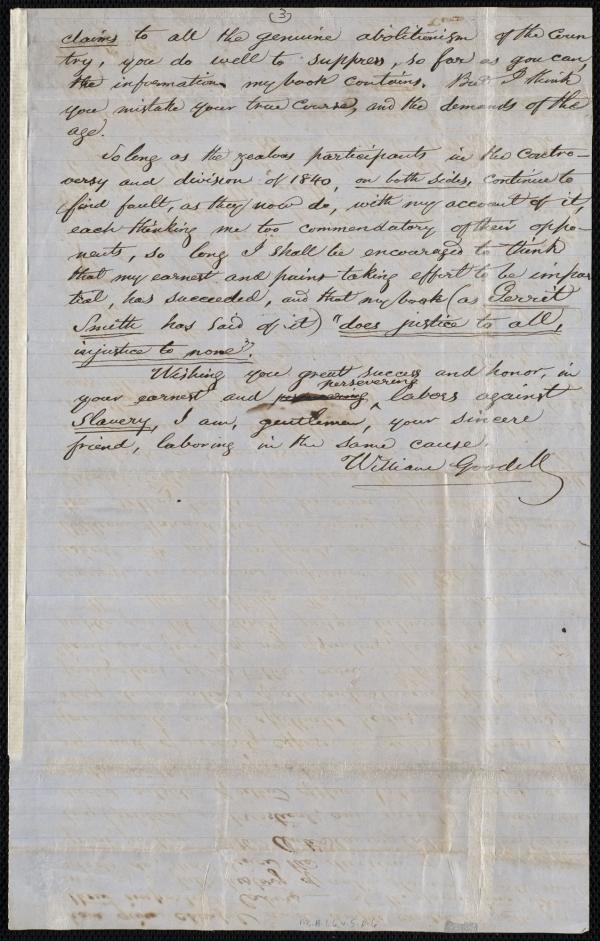 (3)
claims to all the genuine abolitionism of the Coun
try, you do well to suppress, so far as you can,
the information my book contains. But I think
you mistake your true Course, and the demands of the
age.
So long as the zealous participants in the Contro-
versy and division of 1840, on both sides, continue to
find fault, as they now do, with my account of it,
each thinking me too commendatory of their oppo-
nents, so long I shall be encouraged to think
that my earnest and pains-taking effort to be impar
tial, has succeeded, and that my book (as Gerrit
Smith has said of it) "does justice to all,
injustice to none".
Wishing you great success and honor, in
your earnest and persevering labors against
Slavery, I am, gentlemen, your sincere
friend, laboring in the same cause.
William Goodell